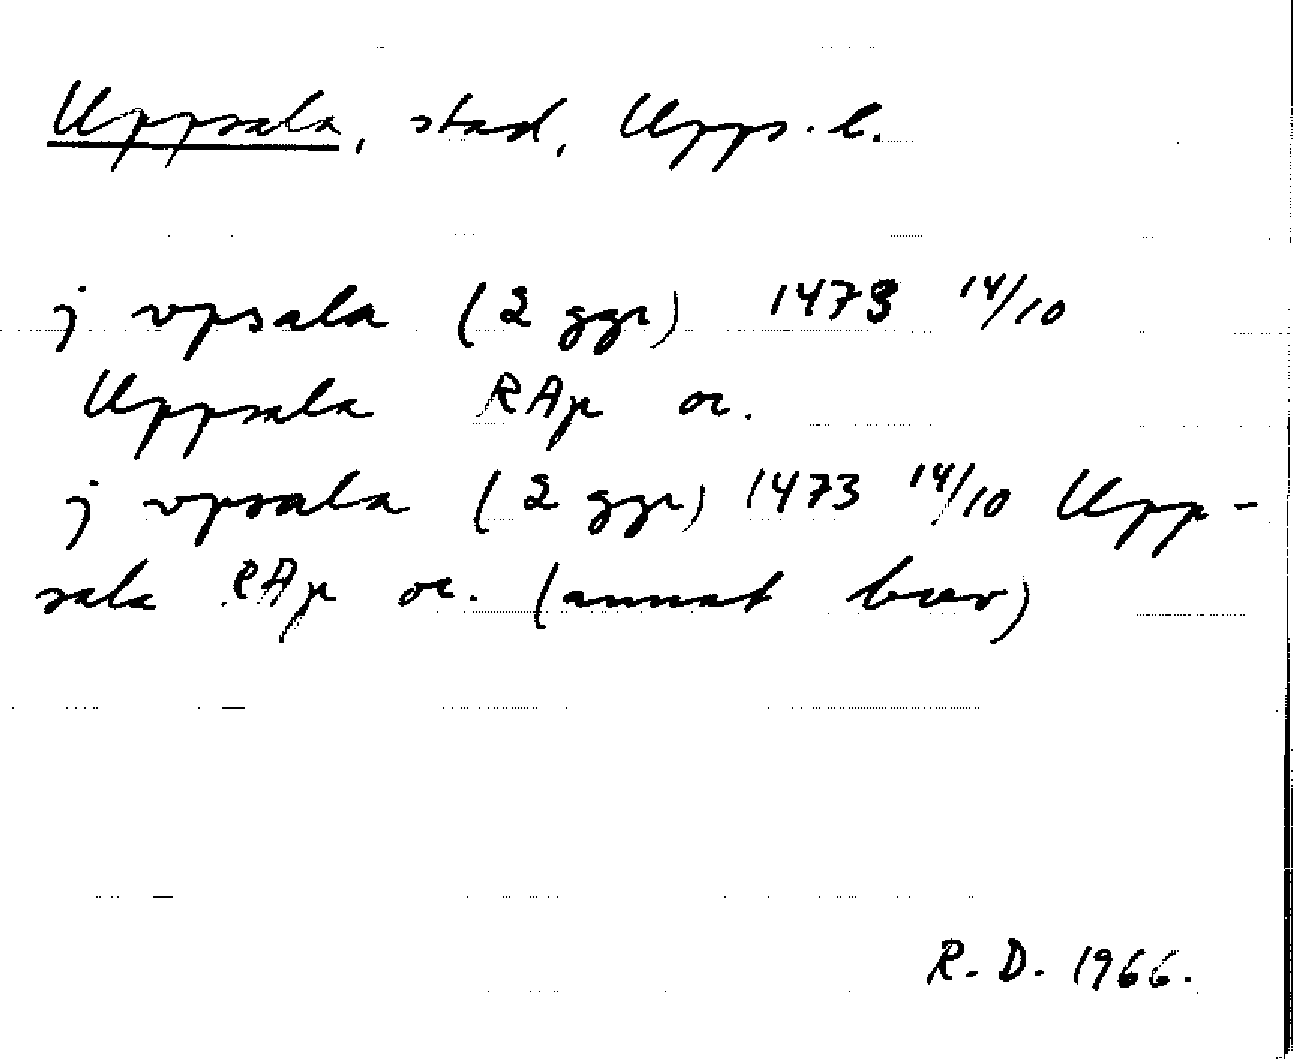 Uppsala, stad, Upps. l.
j vpsala (2 ggr) 1473 14/10
Uppsala RAp or.
j vpsala (2 ggr) 1473 14/10 Upp-
sala RAp or. (annat brev)
R. D. 1966.